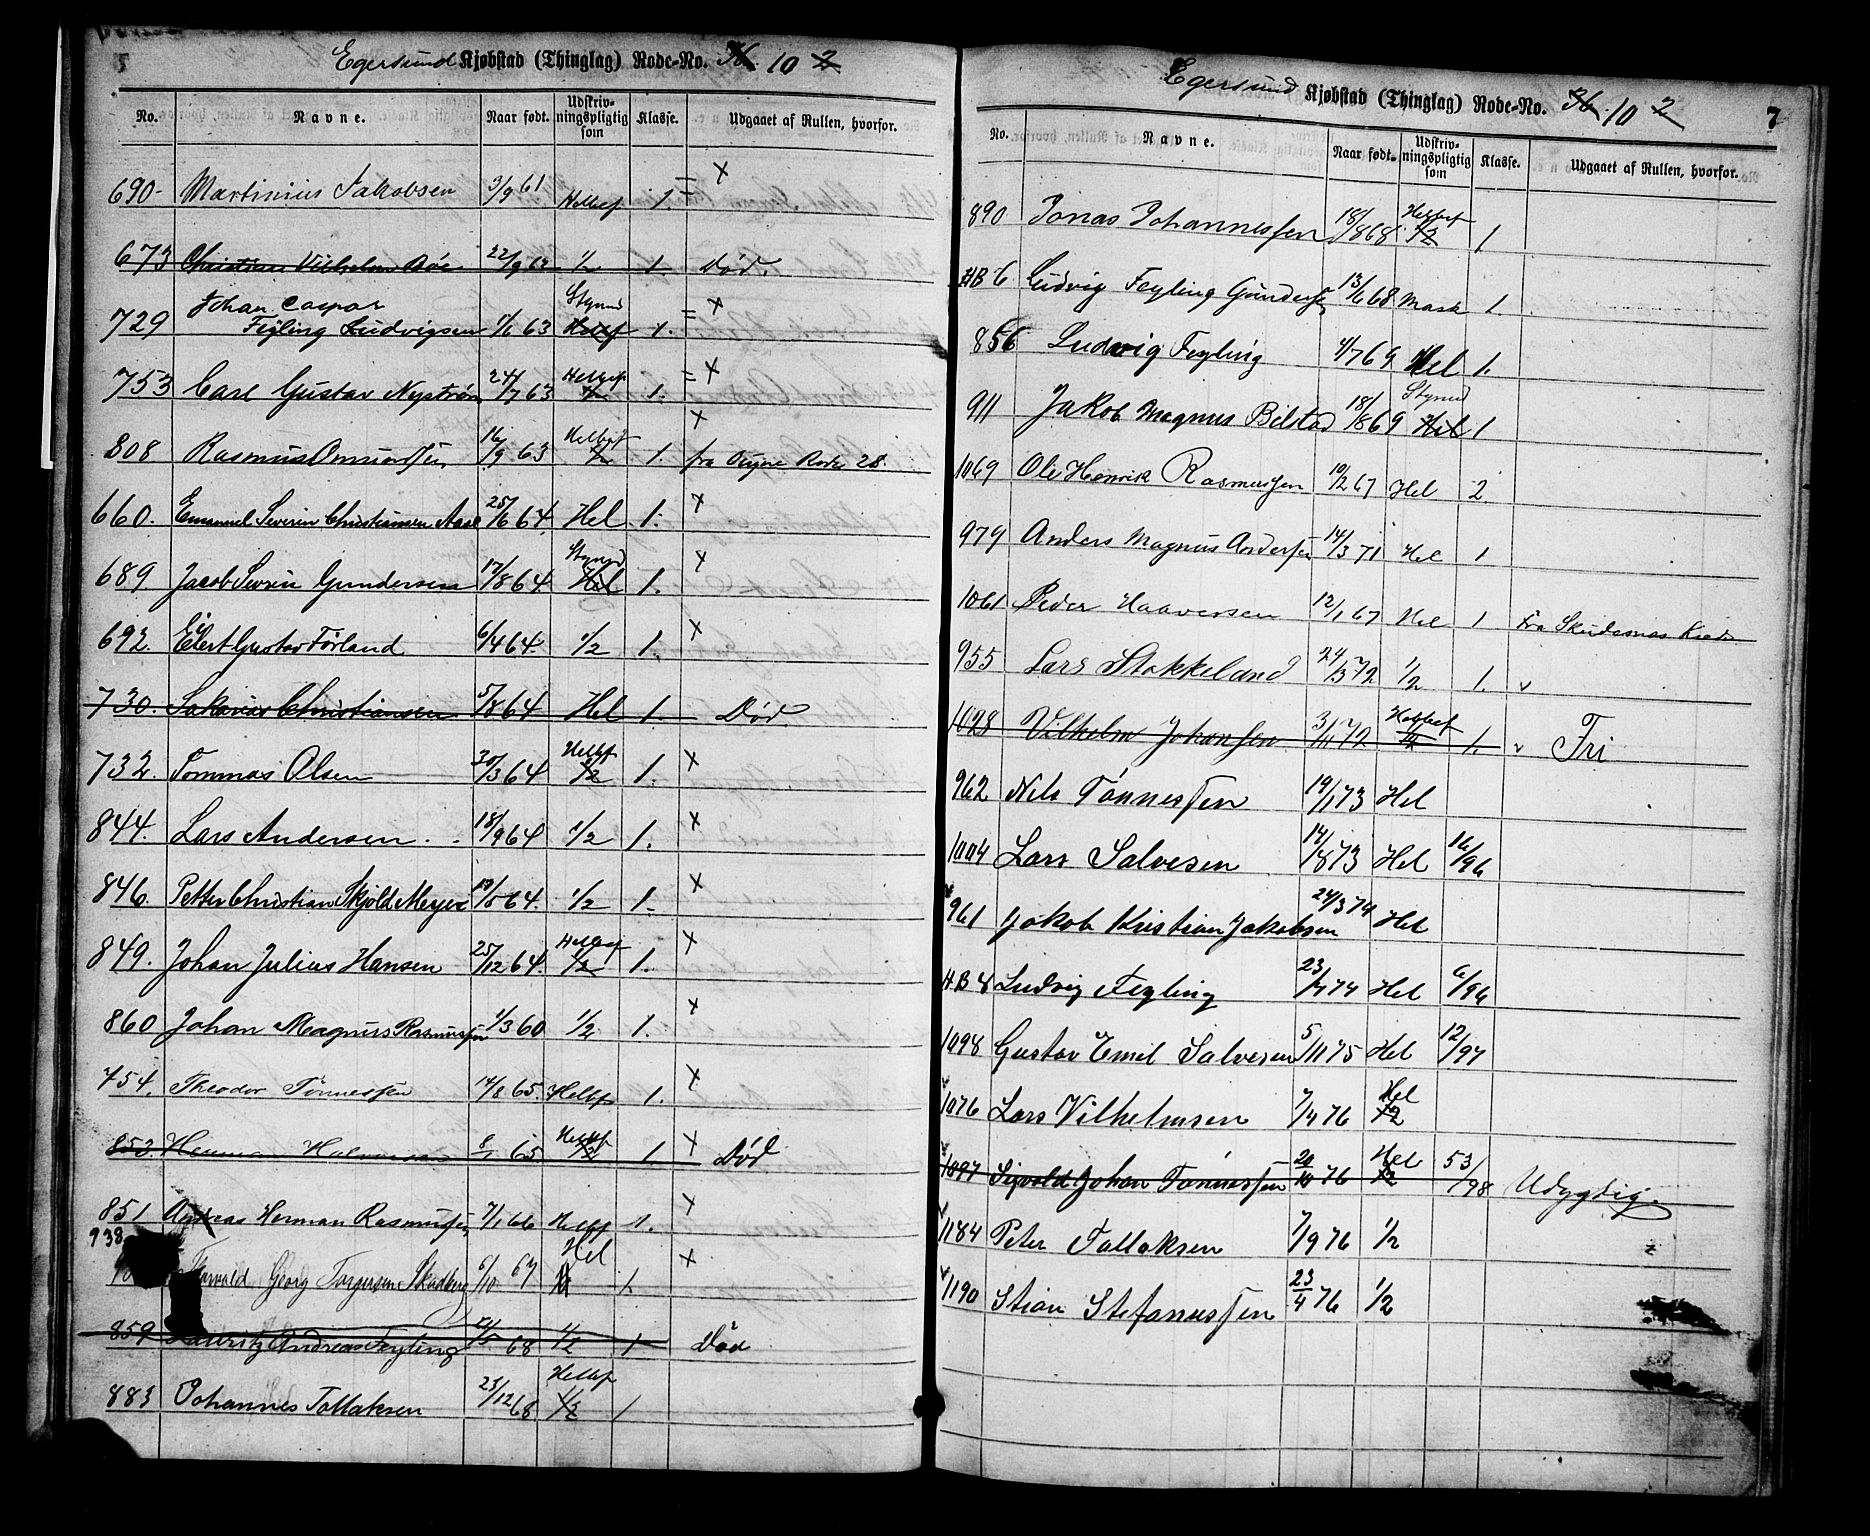 Egersund Kjøbstad (Thinglag) Rode-No. 36. 10 2
No. Navne. Naar født. Udskriv-ningspligtig som Klasse. Udgaaet af Rullen, hvorfor.
690- Martinius Jakobsen 3/9 61 Helbef 1. = x
673 Christian Vilhelm Bóe 22/9 62 1/2 1. Død.
729 Johan Caspar Feyling Ludvigsen 1/6 63 Styrmd Helbef 1. = x
753 Carl Gustav Nystrøm 24/7 63 Helbef 1/2 1. = x
808 Rasmus Omundsen 16/9 63 Helbef 1/2 1. x fra Rode 28.
660. Emanuel Severin Christiansen Aase 25/6 64. Hel 1. x
689. Jacob Sevrin Gundersen 17/8 64. Styrmd Hel 1. x
692. Eilert Gustav Førland 6/4 64. 1/2 1. x
730. Sakarias Christiansen 5/8 64 Hel 1. Død.
732. Tommas Olsen 30/3 64 Helbf 1/2 1. x
844. Lars Andersen 18/9 64 1/2 1. x
846. Petter Christian Skjold Meyer 64. 1/2 1. x
849. Johan Julius Hansen 25/12 64. Helbef 1/2 1. x
860 Johan Magnus Rasmussen 1/3 60 1/2 1. x
754. Theodor Tønnessen 14/8 65. Helbf 1. x
853. Herman Halvorsen 8/1 65 Helbf 1/2 1 x Død
851 Andreas Herman Rasmussen 7/1 66 Helbf 1. x
938 Torvald Georg Torgersen Skadberg 6/10 67 Hel 1. x
859 Lauritz Andreas Feyling 68 1/2 1 Død
883 Johannes Tollaksen 23/12 68 Helbf 1/2 1
Egersund Kjøbstad (Thinglag) Rode-No. 36. 10 2 7
No. Navne. Naar født. Udskriv-ningspligtig som Klasse. Udgaaet af Rullen, hvorfor.
890 Jonas Johannessen 18/8 68 Helbef 1/2 1
HB 6 Ludvig Feyling Gundersen 13/6 68 Mask 1.
856 Ludvig Feyling 4/7 69 Hel 1.
911 Jakob Magnus Bilstad 18/8 69 Styrmd Hel 1
1069 Ole Henrik Rasmussen 19/2 67 Hel 2.
979 Anders Magnus Andersen 14/3 71 Hel 1.
1061 Peder Haaversen 12/1 67 Hel 1. Fra Skudesnæs Kreds
955 Lars Stokkeland 24/3 72 1/2 1. v
1028 Vilhelm Johansen 3/11 72 Helbef 1/2 1. v Fri
962 Nils Tønnessen 19/1 73 Hel
1004 Lars Salvesen 14/8 73 Hel 16/96
961 Jakob Kristian Jakobsen 24/3 74 Hel
HB 8 Ludvig Feyling 23/7 74 Hel 6/96
1098 Gustav Emil Salvesen 5/11 75 Hel 12/97
1076 Lars Vilhelmsen 7/4 76 Hel 1/2
1097 Sigvald Johan Tønnessen 20/10 76 Hel 1/2 53/98 Udygtig.
1184 Peter Tollaksen 7/9 76 1/2
1190 Stian Stefanussen 23/4 76 1/2